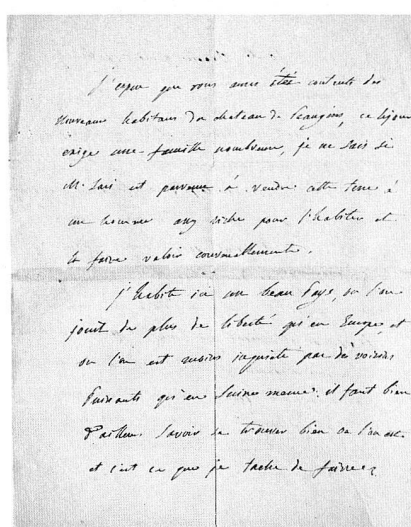 J'espere que vous aurez été contents des
nouveaux habitans du chateau de Prangins, ce bijou
exige une famille nombreuse, je ne sais si
Mr. sais est parvenu à vendre cette terre à
un homme assez riche pour l'habiter et
la faire valoir convenablement.
J'habite ici un beau Pays, ou l'on
jouit de plus de liberté qu'en Europe, et
ou l'on est moins inquieté par des voisins
Puissants qu'en Suisse meme; il faut bien
d'ailleurs savoir se trouver bien ou l'on est
et c'est ce que je tache de faire